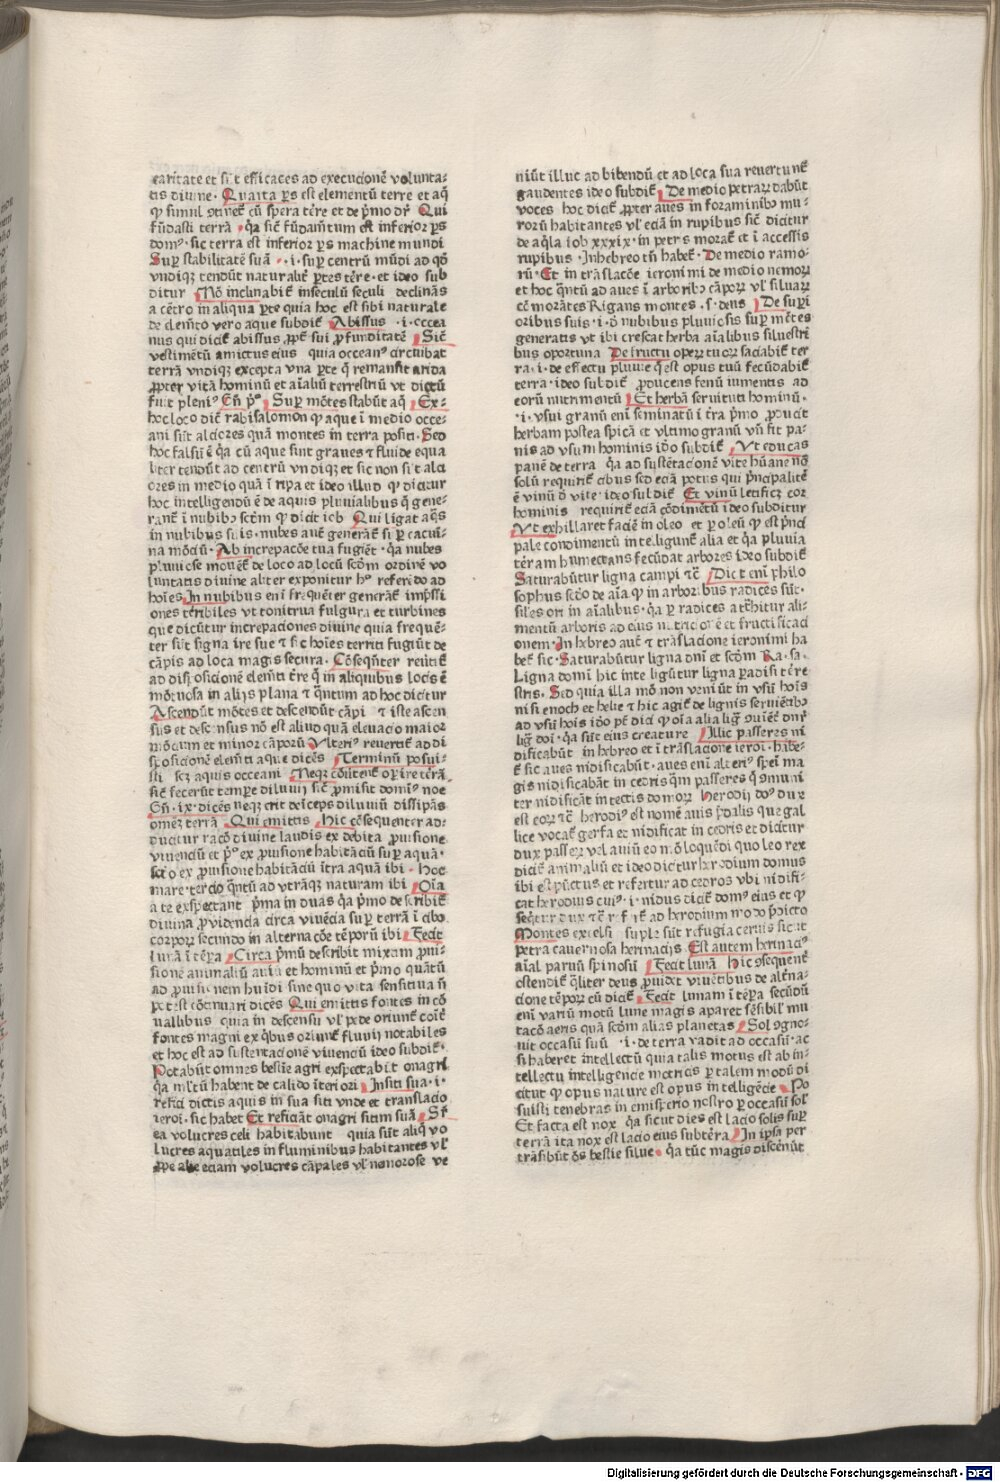 caritate et sūt efficaces ad execucionē volunta-
tis diuine. Quarta ps est elementū terre et aq̄
fūdasti terrā
domꝰ. sic terra est inferior ps machine mundi
Sup stabilitatē suā .i. sup centrū mūdi ad qd̄
vndiqꝫ tendūt
ditur Nō inclinabit̄ in seculū seculi declinās
a cētro in aliqua pte quia hoc est sibi naturale
de elemēto vero aque subdit̄ Abissus .i. occea
nus qui dicit̄ abissus ppt̄ sui pfunditatē Sic̄
vestimētū amictus eius quia occeanꝰ circūbat
terrā vndiqꝫ excepta vna pte q̄ remansit arida
ppter vitā hominū et aīaliū terrestriū vt dictū
fuit pleniꝰ Gn̄ pº Sup mōtes stabūt aq̄ Ex-
hoc loco dicit̄ rabi salomon ꝙ aque i medio occe-
ani sūt alciores quā montes in terra positi. Sed
hoc falsū ē qa cū aque sint graues et fluide equa
liter tendūt ad centrū vndiqꝫ et sic non sūt alci
ores in medio quā i ripa et ideo illud ꝙ dicitur
hoc intelligendū ē de aquis pluuialibus q̄ gene-
rant̄ i nubibꝫ scd̄m ꝙ dicit iob Qui ligat aq̄s
in nubibus suis. nubes aut̄ generāt̄ sup cacui-
na mōciū. Ab increpacōe tua fugiēt. qa nubes
pluuiose mouēt̄ de loco ad locū scd̄m ordinē vo
luntatis diuine aliter exponitur hº referēdo ad
hoīes In nubibus enī frequēter generāt̄ impssi
ones terribiles vt tonitrua fulgura et turbines
que dicūtur increpaciones diuine quia frequē-
ter sūt signa ire sue ⁊ sic hoīes territi fugiūt de
cāpis ad loca magis secura. Cōseqn̄ter reuertit̄
ad disposicionē elemēti terre qn̄ in aliquibus locis ē
mōtuosa in alijs plana ⁊ qntum ad hoc dicitur
Ascendūt mōtes et descendūt cāpi ⁊ iste ascen
sus et descensus nō est aliud quā eleuacio maior
mōcium et minor cāporū Vlteriꝰ reuertit̄ ad di
sposicionē elemēti aque dicēs Terminū posui-
sti scꝫ aquis occeani Neqꝫ cōuertent̄ operire terā
sic̄ fecerūt tempe diluuij sic̄ pmisit domīꝰ noe
Gn̄. ix. dicēs neqꝫ erit deīceps diluuiū dissipās
omēꝫ terrā Qui emittis Hic cōsequenter ad-
ducitur racō diuine laudis ex debita puisione
viuenciū et pº ex puisione habitāciū sup aquā.
scdo ex puisione habitāciū ītra aquā ibi. Hoc
mare. tercio qntū ad vtrāqꝫ naturam ibi Oīa
a te expectant pma in duas qa pmo describit̄
diuina puidencia circa viuēcia sup terrā i cibo
corporꝝ secundo in alternacōe tēporū ibi Fecit
lunā i tēpa Circa pmū describit mixam puī-
sionē animaliū auiū et hominū et pmo quātū
ad puisionem humidi sine quo vita sensitiua n̄
potest cōtinuari dicēs Qui emittis fontes in cō
uallibus quia in descensu vl̄ pede oriunt̄ cōīt̄
fontes magni ex qbus oriunt̄ fluuij notabiles
et hoc est ad sustentacionē viuenciū ideo subdit̄.
Potabūt omnes bestie agri expectabūt onagri
qa mltū habent de calido īteriori In siti sua .i.
refici dictis aquis in sua siti vnde et translacio
ieroī. sic habet Et reficiāt onagri sitim suā Sr̄
ea volucres celi habitabunt quia sūt aliq̄ vo
lucres aquatiles in fluminibus habitantes vl̄
ppe alie eciam volucres cāpales vl̄ nemorose ve
niūt illuc ad bibendū et ad loca sua reuertunt̄
gaudentes ideo subdit̄ De medio petraꝝ dabūt
voces hoc dicit̄ ppter aues in foraminibꝫ mu-
rorū habitantes vl̄ eciā in rupibus sic̄ dicitur
de aqla iob xxxix. in petris morat̄ et i accessis
rupibus. In hebreo tn̄ habet̄. De medio ramo-
rū. Et in trāslacōe ieronimi de medio nemorꝝ
et hoc qntū ad aues i arboribꝫ cāporꝝ vl̄ siluarꝝ
cōmorātes Rigans montes .s. deus De supi
oribus suis .i. d̄ nubibus pluuiosis sup mōtes
generatis vt ibi crescat herba aīalibus siluestri
bus oportuna De fructu operꝝ tuorꝝ saciabit̄ ter
ra .i. de effectu pluuie q̄ est opus tuū fecūdabit̄
terra. ideo subdit̄ producens fenū iumentis ad
eorū nutrimentū Et herbā seruituti hominū.
.i. vsui granū enī seminatū i t̄ra pmo pducit
herbam postea spicā et vltimo granū vn̄ fit pa-
nis ad vsum hominis iđo subdit̄ Vt educas
panē de terra qa ad sustētacionē vite hūane nō
solū requirit̄ cibus sed eciā potus qui pncipalit̄
ē vinū d̄ vite. ideo subdit̄ Et vinū letificꝫ cor
hominis requirit̄ eciā cōdimētū ideo subditur
Vt exhillaret faciē in oleo et p oleū ꝙ est pnci
pale condimentū intelligunt̄ alia et qa pluuia
terram humectans fecūdat arbores ideo subdit̄
Saturabūtur ligna campi ⁊c̄ Dicit enī philo
sophus scdo de aīa ꝙ in arboribus radices sūt.
siles ori in aīalibus. qa p radices attrahitur ali-
mentū arboris ad eius nutricionē et fructificaci
onem. In hebreo aut̄ ⁊ trāslacione ieronimi ha
bet̄ sic. Saturabūtur ligna dn̄i et scd̄m Ra. sa.
Ligna domī hic intelligūtur ligna paradisi terre
stris. Sed quia illa mō non veniūt in vsū hoīs
nisi enoch et helie ⁊ hic agit̄ de lignis seruiētibꝫ
ad vsū hoīs iđo pt̄ dici ꝙ oīa alia lig
liḡ doī. qa sūt eius creature Illic passeres ni
dificabūt in hebreo et i trāslacione ieroī. habe-
t̄ sic aues nidificabūt. aues enī alteriꝰ speī ma
gis nidificabāt in cedris qm passeres q̄ ꝯmuni
ter nidificāt in tectis domorꝝ Herodij doꝰ dux
est eorꝝ ⁊c̄ herodiꝰ est nomē auis pdalis que gal
lice vocat̄ gerfa et nidificat in cedris et dicitur
dux passerꝝ vel auiū eo mō loquēdi quo leo rex
dicit̄ animaliū et ideo dicitur herodium domus
ibi est punctus et refertur ad cedros vbi nidifi-
cat herodius cuiꝰ .i. nidus dicit̄ domꝰ eius et ꝙ
seqtur dux ⁊c̄ refert̄ ad herodium modo pdicto
Montes excelsi suple sūt refugia ceruis sicut
petra cauernosa herinacijs Est autem herinaciꝰ
aīal paruū spinosū Fecit lunā Hic ꝯsequent̄
ostendit̄ qliter deus puidet viuētibus de alt̄na-
cione tēporꝝ cū dicit̄ Fecit lunam i tēpa secūdū
enī variū motū lune magis aparet sēsibil̄ mu
tacō aeris quā scd̄m alias planetas Sol ꝯgno-
uit occasū suū .i. de terra vadit ad occasū. ac
si haberet intellectū quia talis motus est ab in-
tellectu intelligencie motricis p talem modū di
citur ꝙ opus nature est opus intelligēcie Po
suisti tenebras in emisperio nostro p occasū solꝭ
Et facta est nox qa sicut dies est lacio solis sup
terrā ita nox est lacio eius subterra In ipsa per
trāsibūt ōs bestie silue. qa tūc magis discenūt
Digitalisierung gefördert durch die Deutsche Forschungsgemeinschaft - DFG